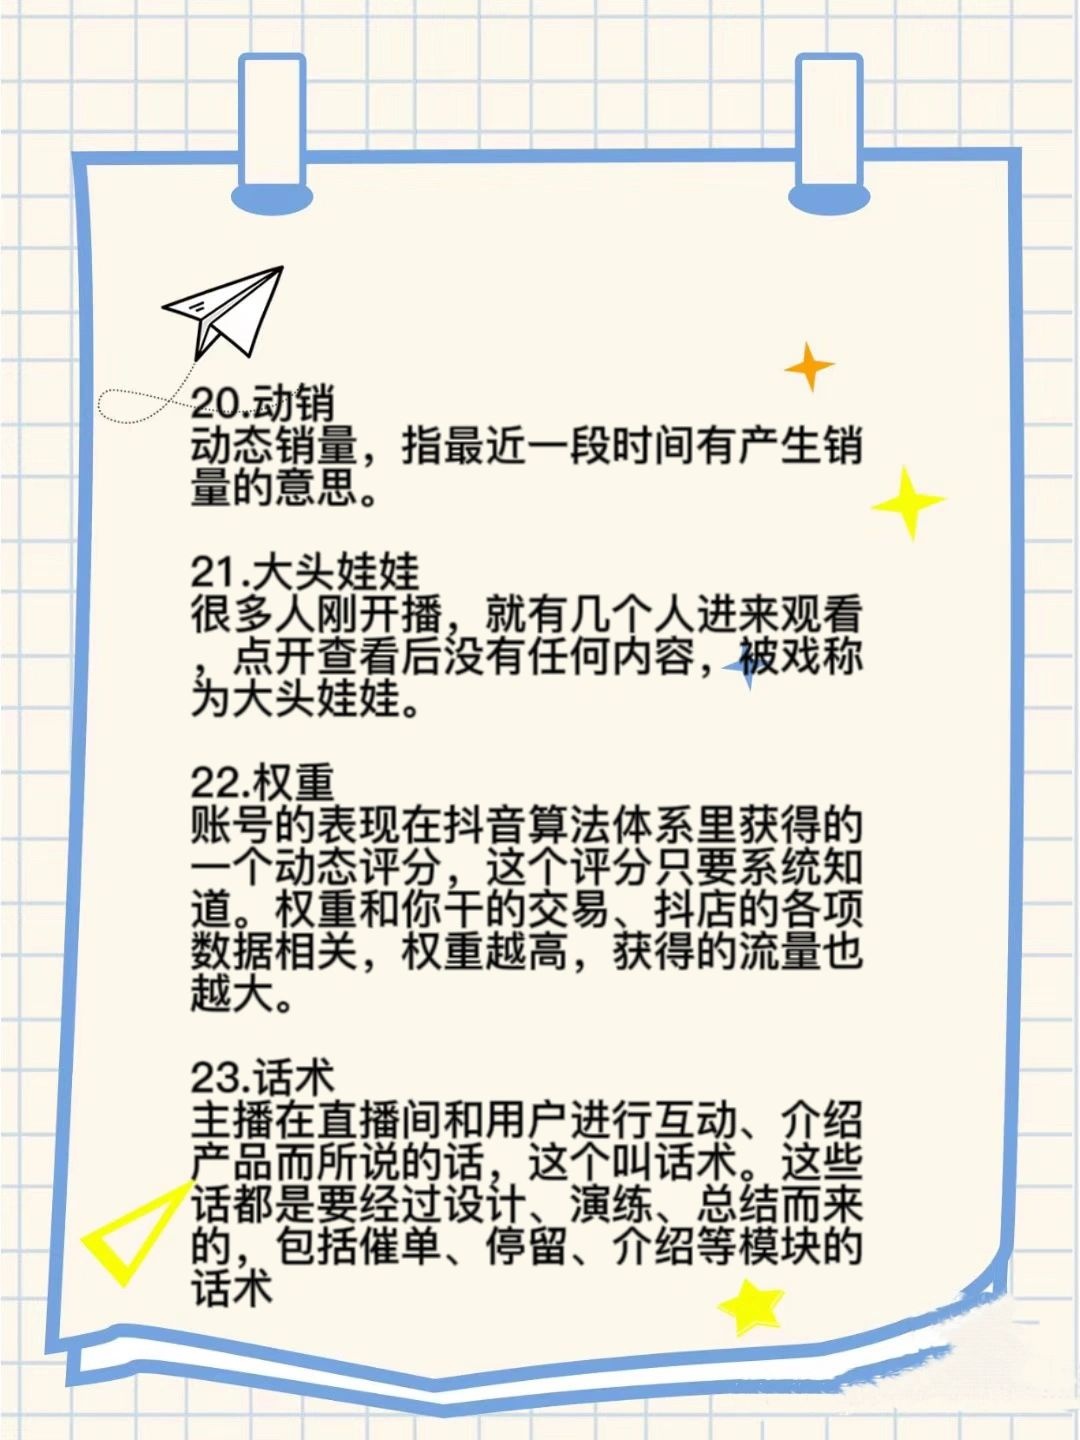 20.动销
动态销量，指最近一段时间有产生销
量的意思。
21.大头娃娃
很多人刚开播，就有几个人进来观看
，点开查看后没有任何内容，被戏称
为大头娃娃。
22.权重
账号的表现在抖音算法体系里获得的
一个动态评分，这个评分只要系统知
道。权重和你干的交易、抖店的各项
数据相关，权重越高，获得的流量也
越大。
23.话术
主播在直播间和用户进行互动、介绍
产品而所说的话，这个叫话术。这些
话都是要经过设计、演练、总结而来
的，包括催单、停留、介绍等模块的
话术